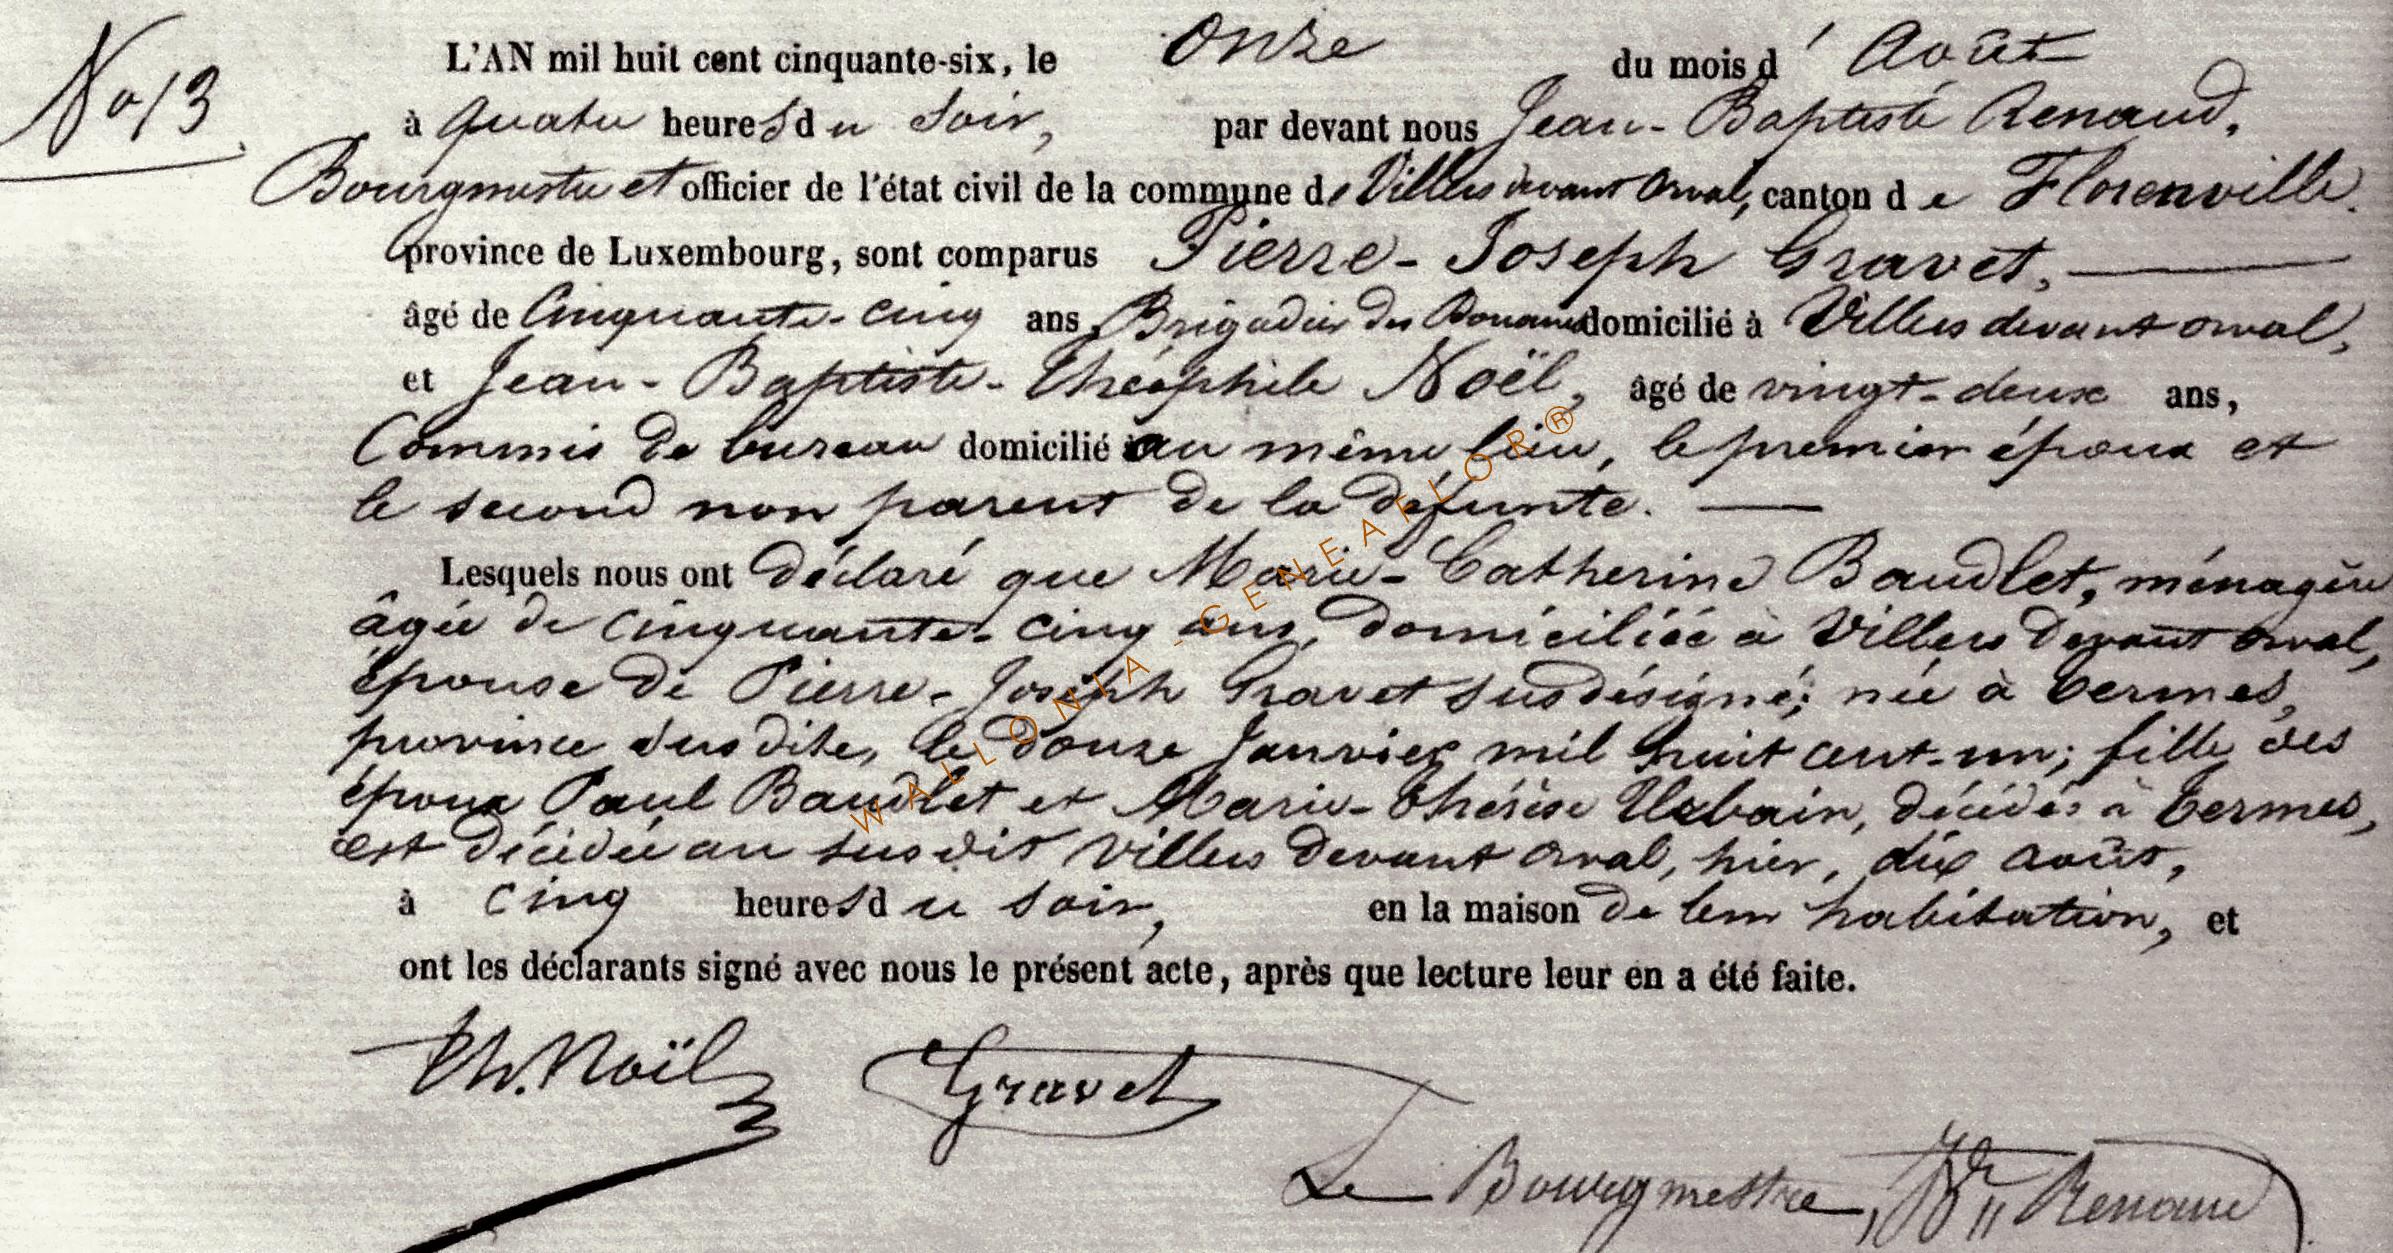 No 13
L'AN mil huit cent cinquante-six, le onze du mois d'Août
à quatre heures du soir, par devant nous Jean-Baptiste Renaud,
Bourgmestre et officier de l'état civil de la commune de Villers devant Orval, canton de Florenville.
province de Luxembourg, sont comparus Pierre-Joseph Gravet,
âgé de cinquante-cinq ans, Brigadier des Douanes domicilié à Villers devant orval,
et Jean-Baptiste-Théophile Noël, âgé de vingt-deux ans,
Commis de bureau domicilié au même lieu, le premier époux et
le second non parent de la défunte.
Lesquels nous ont déclaré que Marie-Catherine Baudlet, ménagère
âgée de cinquante-cinq ans, domiciliée à Villers Devant orval,
épouse de Pierre-Joseph Gravet susdésigné; née à Termes,
province susdite, le douze Janvier mil huit cent-un; fille des
époux Paul Baudlet et Marie-Thérèse Urbain, décédés à Termes,
est décédée au susdit Villers Devant orval, hier, dix août,
à cinq heures du soir, en la maison de leur habitation, et
ont les déclarants signé avec nous le présent acte, après que lecture leur en a été faite.
Th. Noël Gravet
Le Bourgmestre, Renaud
WALLONIA - GENEAFLOR ®